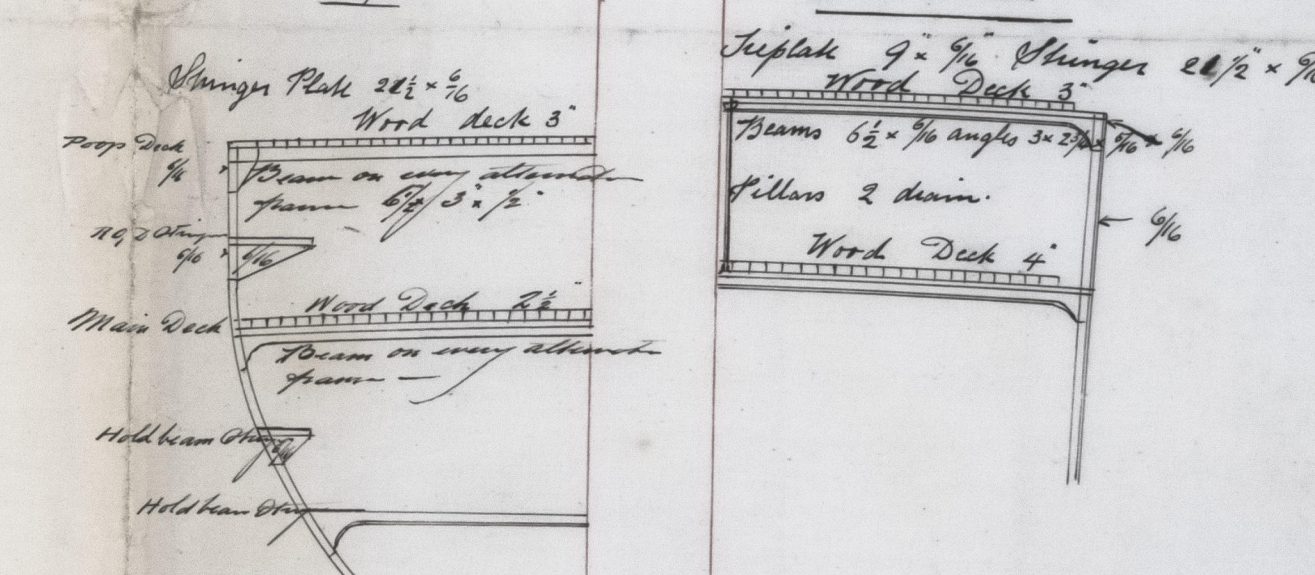 Stringer Plate 21½ × 6/16
Wood deck 3"
Poop Deck
6/16
Beam on every alternate
frame 6½ × 3" × ½"
RQD Stringer
6/16
6/16
Wood Deck 2½"
Main Deck
Beam on every alternate
frame —
Holdbeam Stringer
Holdbeam Stringer
Tieplate 9" × 6/16" Stringer 21 1/2" × 6/16
Wood Deck 3"
Beams 6½ × 6/16 angles 3 × 2¾ × 6/16
6/16
Pillars 2 diam.
6/16
Wood Deck 4"